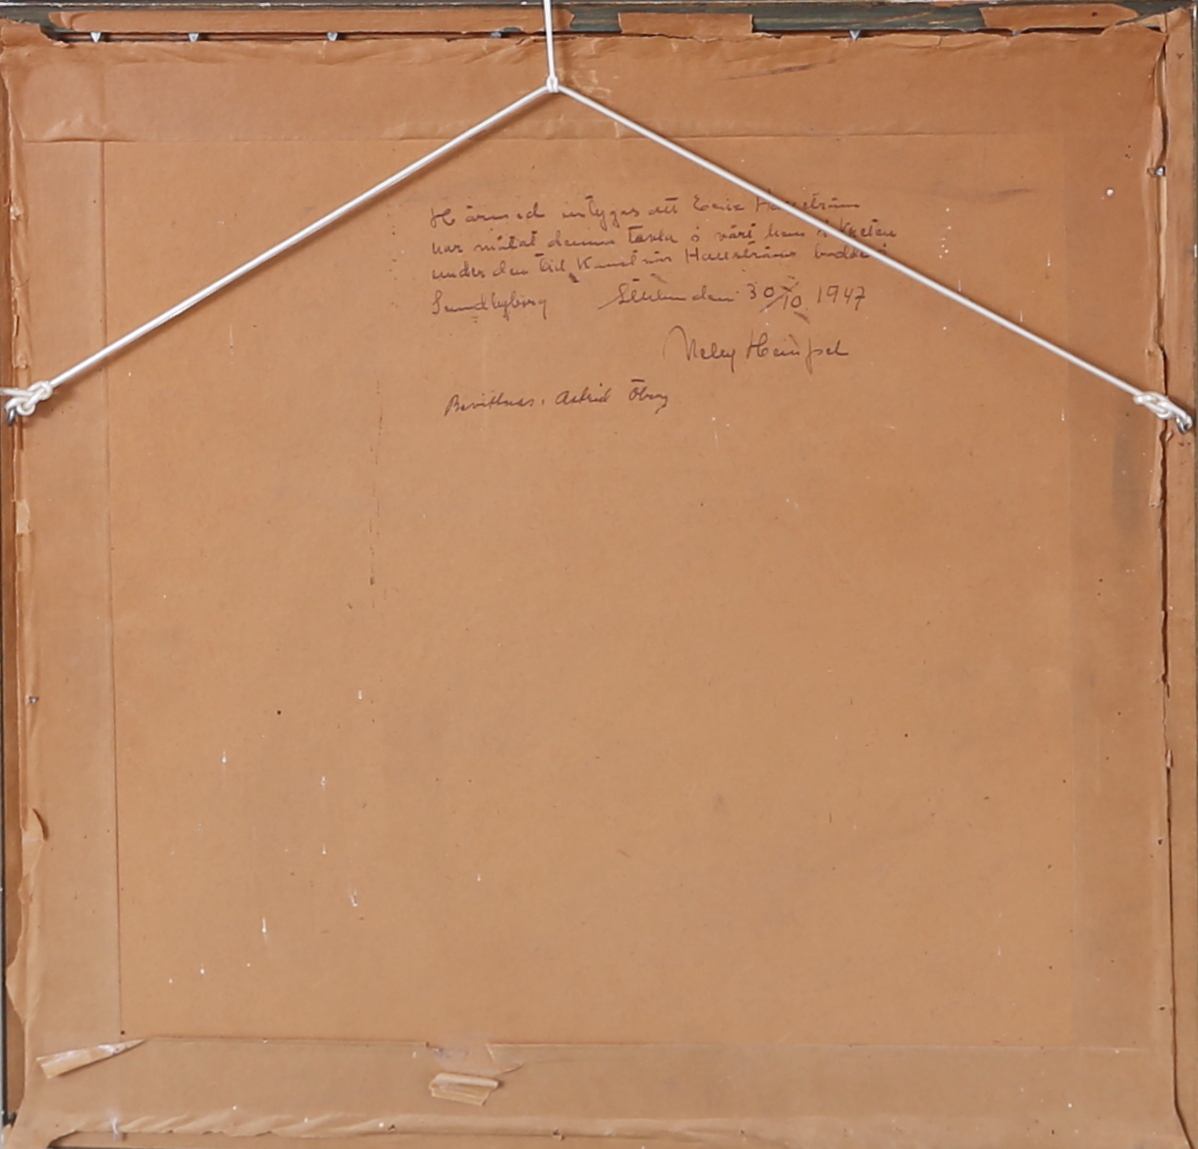 Härmed intygas att Eric Hallström
har målat denna tavla i vårt hem i
under den tid Konstnär Hallströms bodde i
Sundbyberg Sthlm den 30/10 1947
Bevittnas. Astrid Öberg